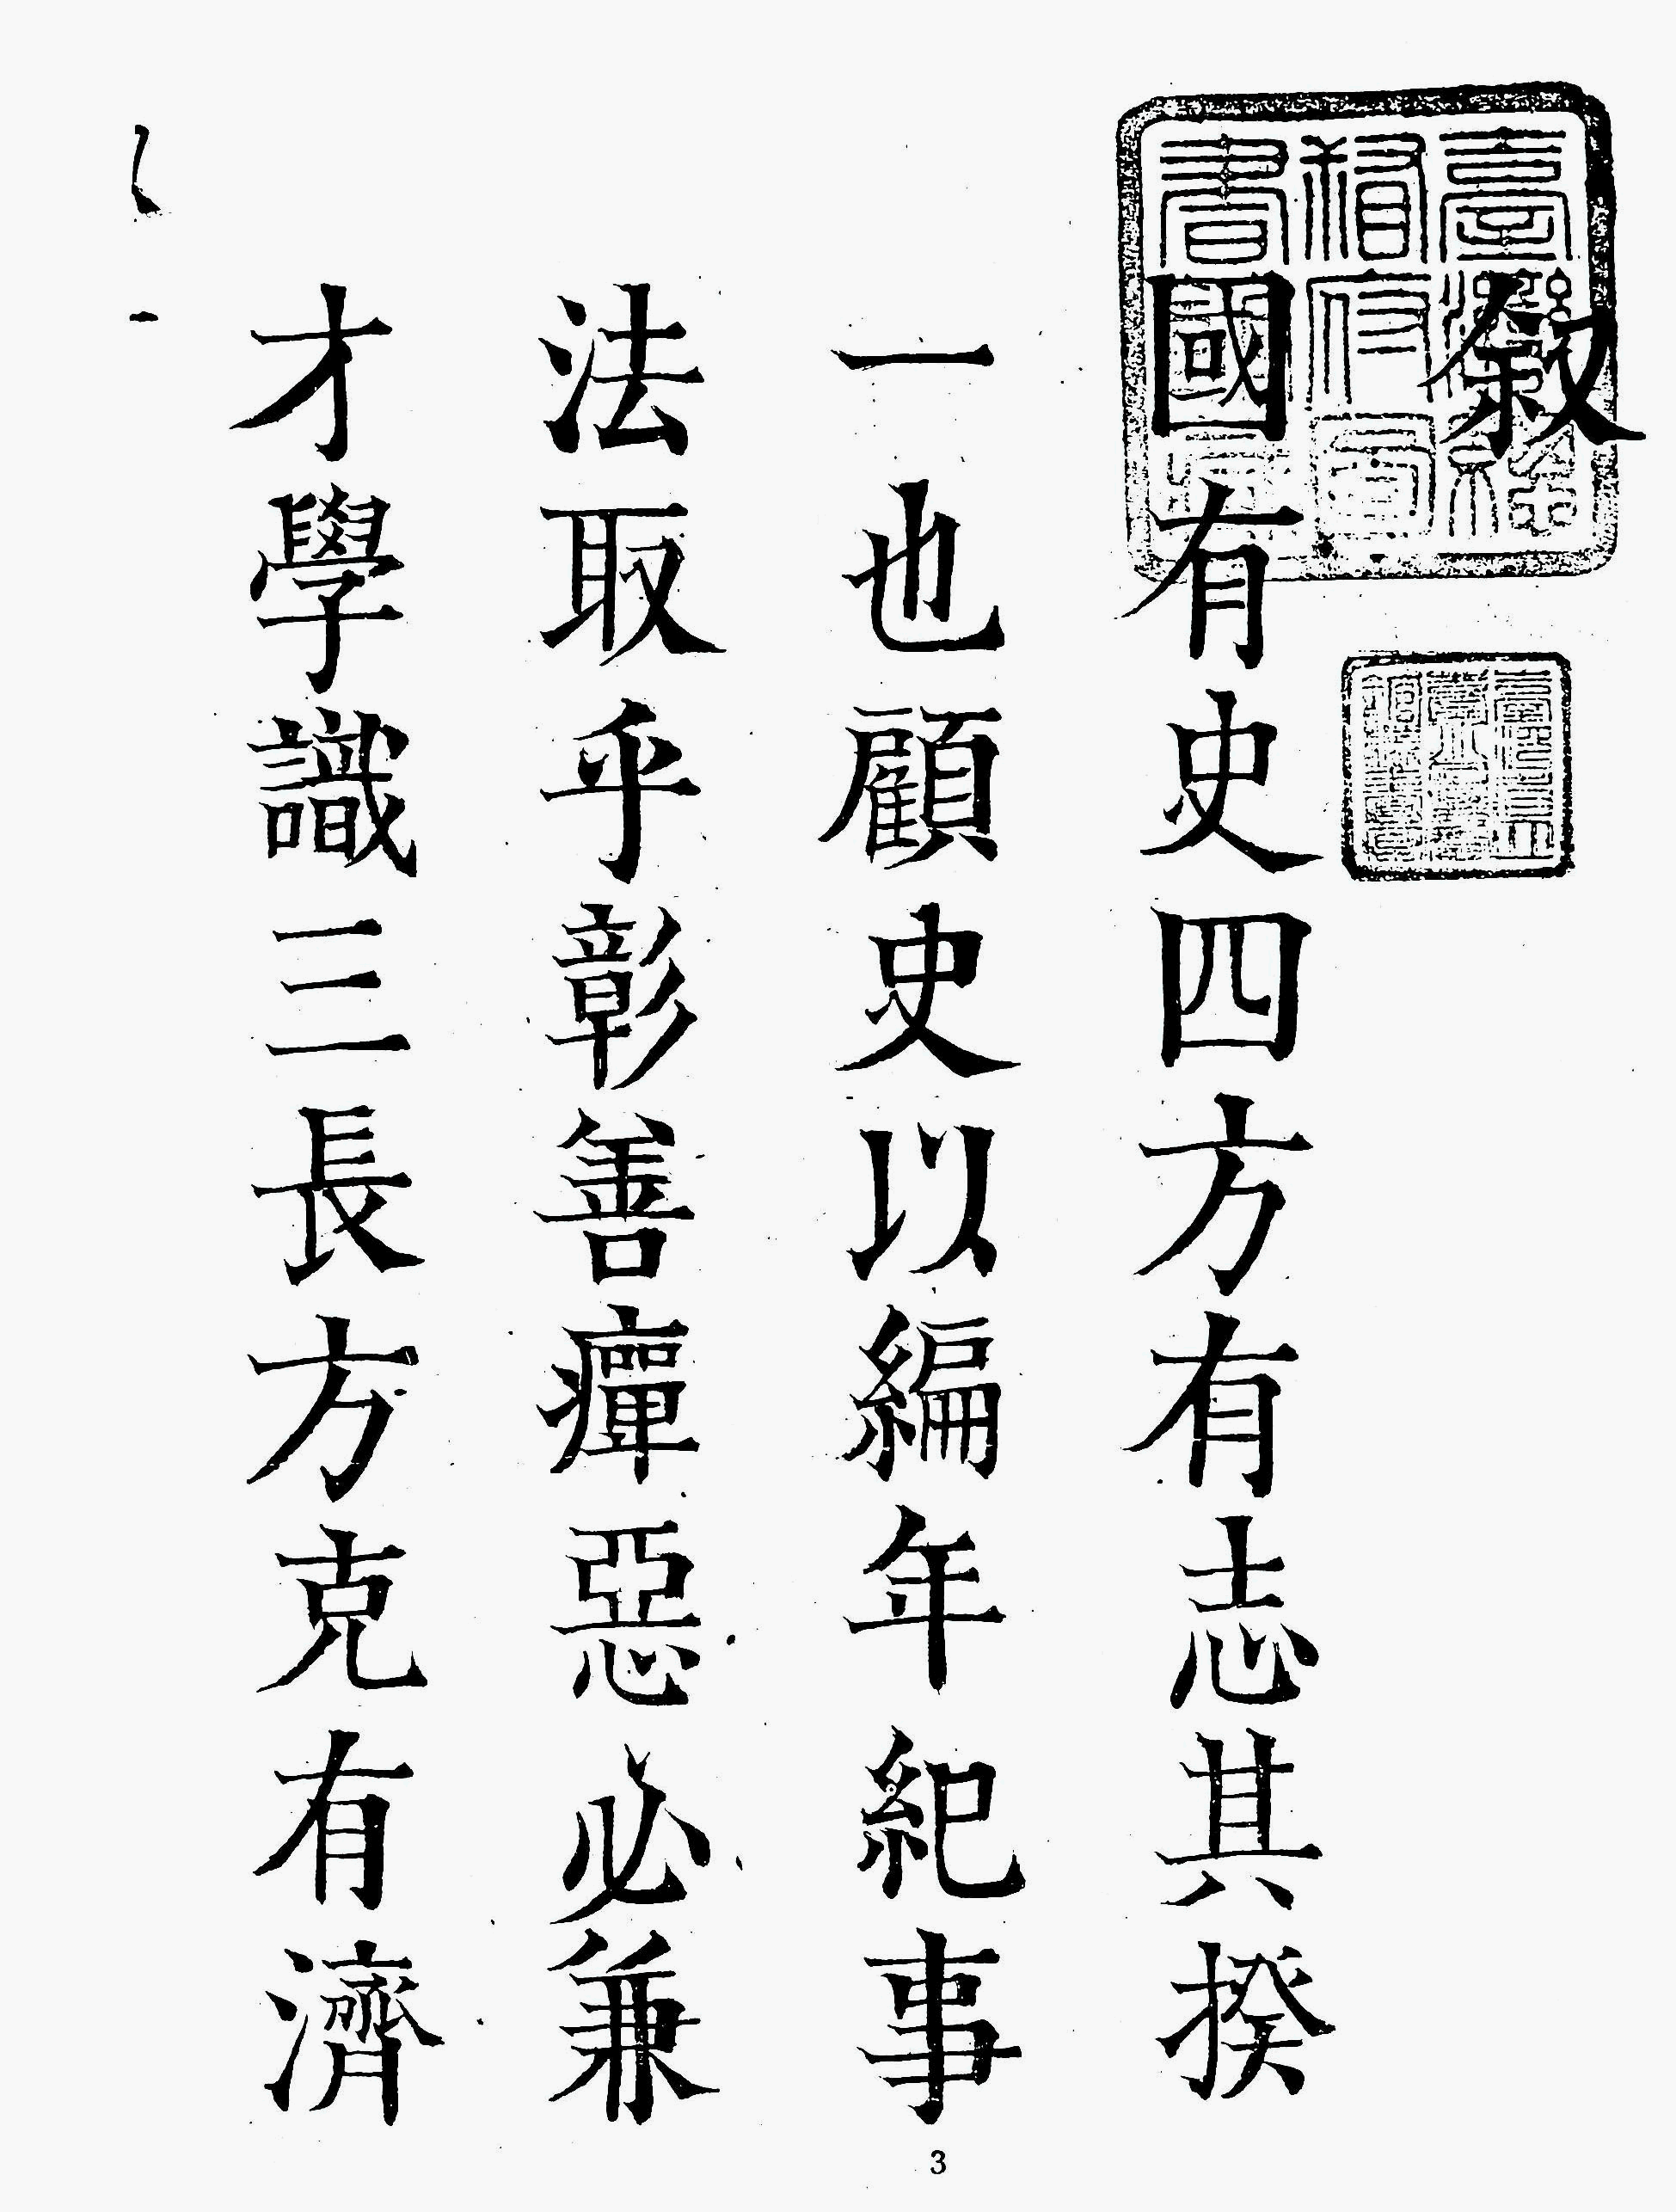 敘
國有史四方有志其揆
一也顧史以編年紀事
法取乎彰善癉惡必兼
才學識三長方克有濟
臺灣總督府圖書館藏
3